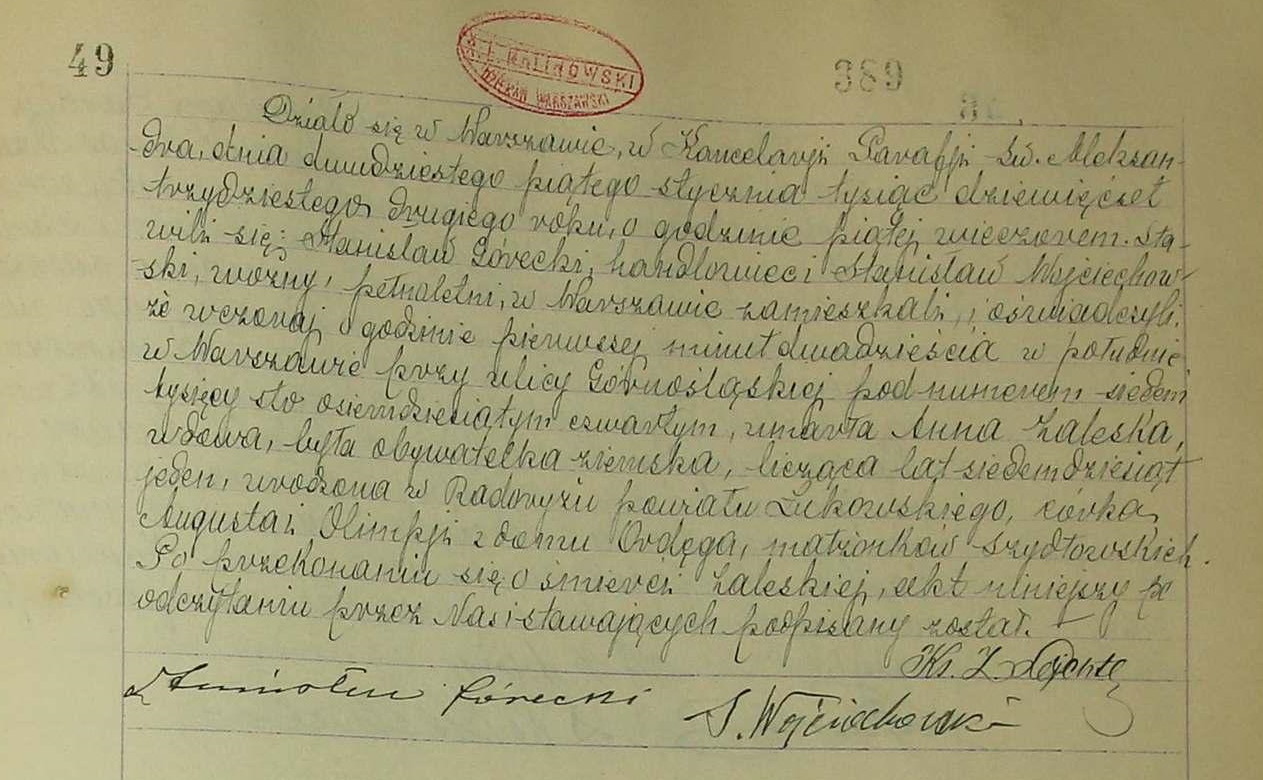 49
X. I. MALINOWSKI
DZIEKAN WARSZAWSKI
389
Działo się w Warszawie, w Kancelarji Parafji Św. Aleksan-
dra, dnia dwudziestego piątego stycznia tysiąc dziewięćset
trzydziestego drugiego roku, o godzinie piątej wieczorem. Sta-
wili się: Stanisław Górecki, handlowiec i Stanisław Wojciechow-
ski, woźny, pełnoletni, w Warszawie zamieszkali, i oświadczyli,
że wczoraj o godzinie pierwszej minut dwadzieścia w południe
w Warszawie przy ulicy Górnośląskiej pod numerem siedem
tysięcy sto osiemdziesiątym czwartym, umarła Anna Zaleska,
wdowa, była obywatelka ziemska, licząca lat siedemdziesiąt
jeden, urodzona w Radoryżu powiatu Łukowskiego, córka
Augusta i Olimpji z domu Ordęga, małżonków Szydłowskich.
Po przekonaniu się o śmierci Zaleskiej, akt niniejszy po
odczytaniu przez Nas i stawających podpisany został.
Ks. Z.
Stanisław Górecki
S. Wojciechowski